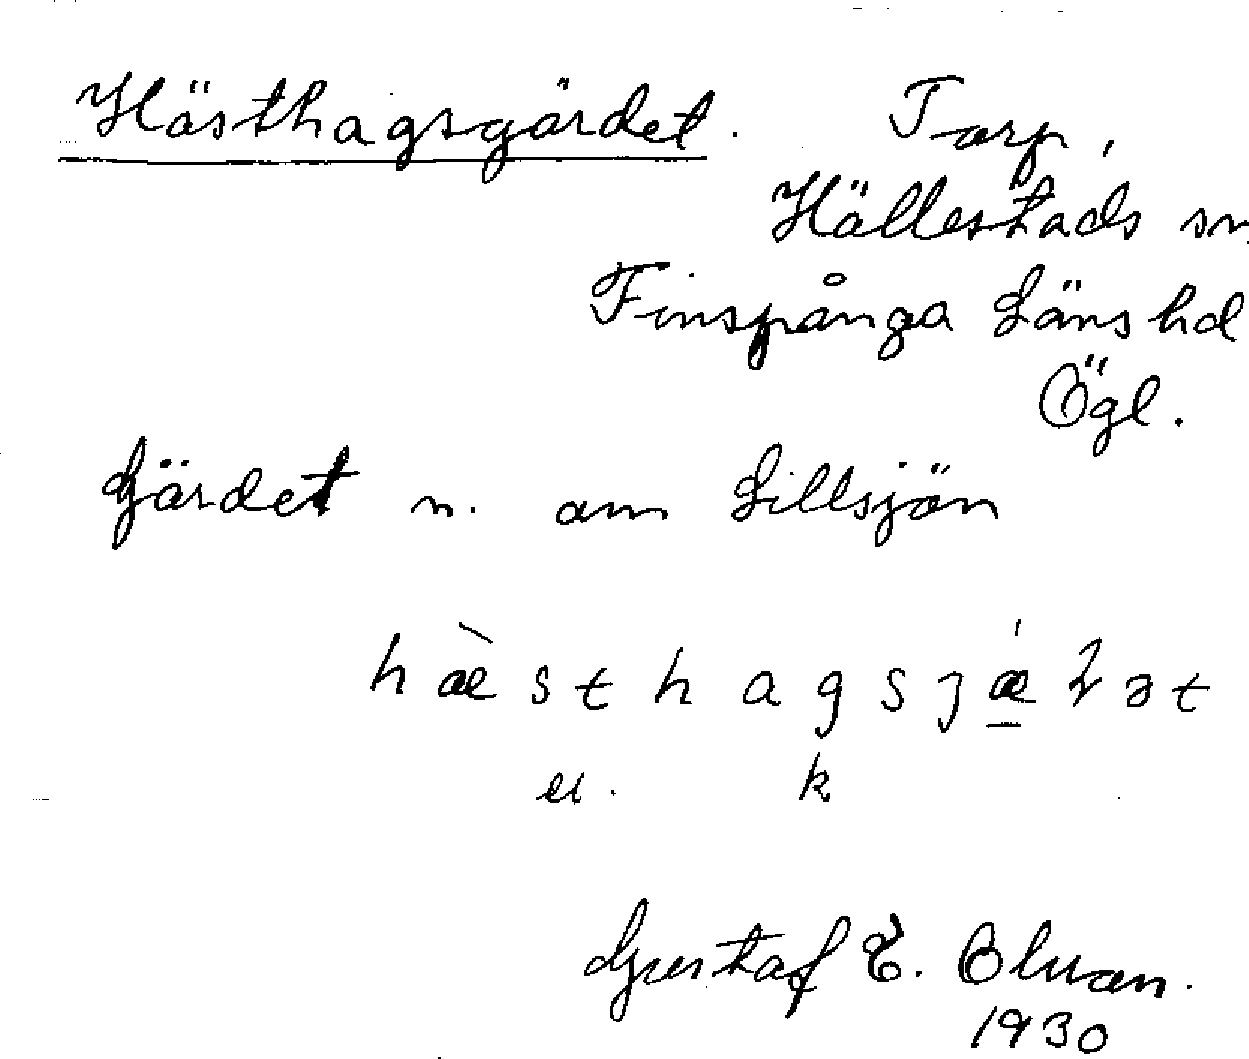 Hästhagsgärdet. Torp,
Hällestads sn
Finspånga Läns hd
Ögl.
Gärdet n. om Lillsjön
hæ̀sthagsjǽ̠ɽət
el. k
Gustaf E. Olson.
1930